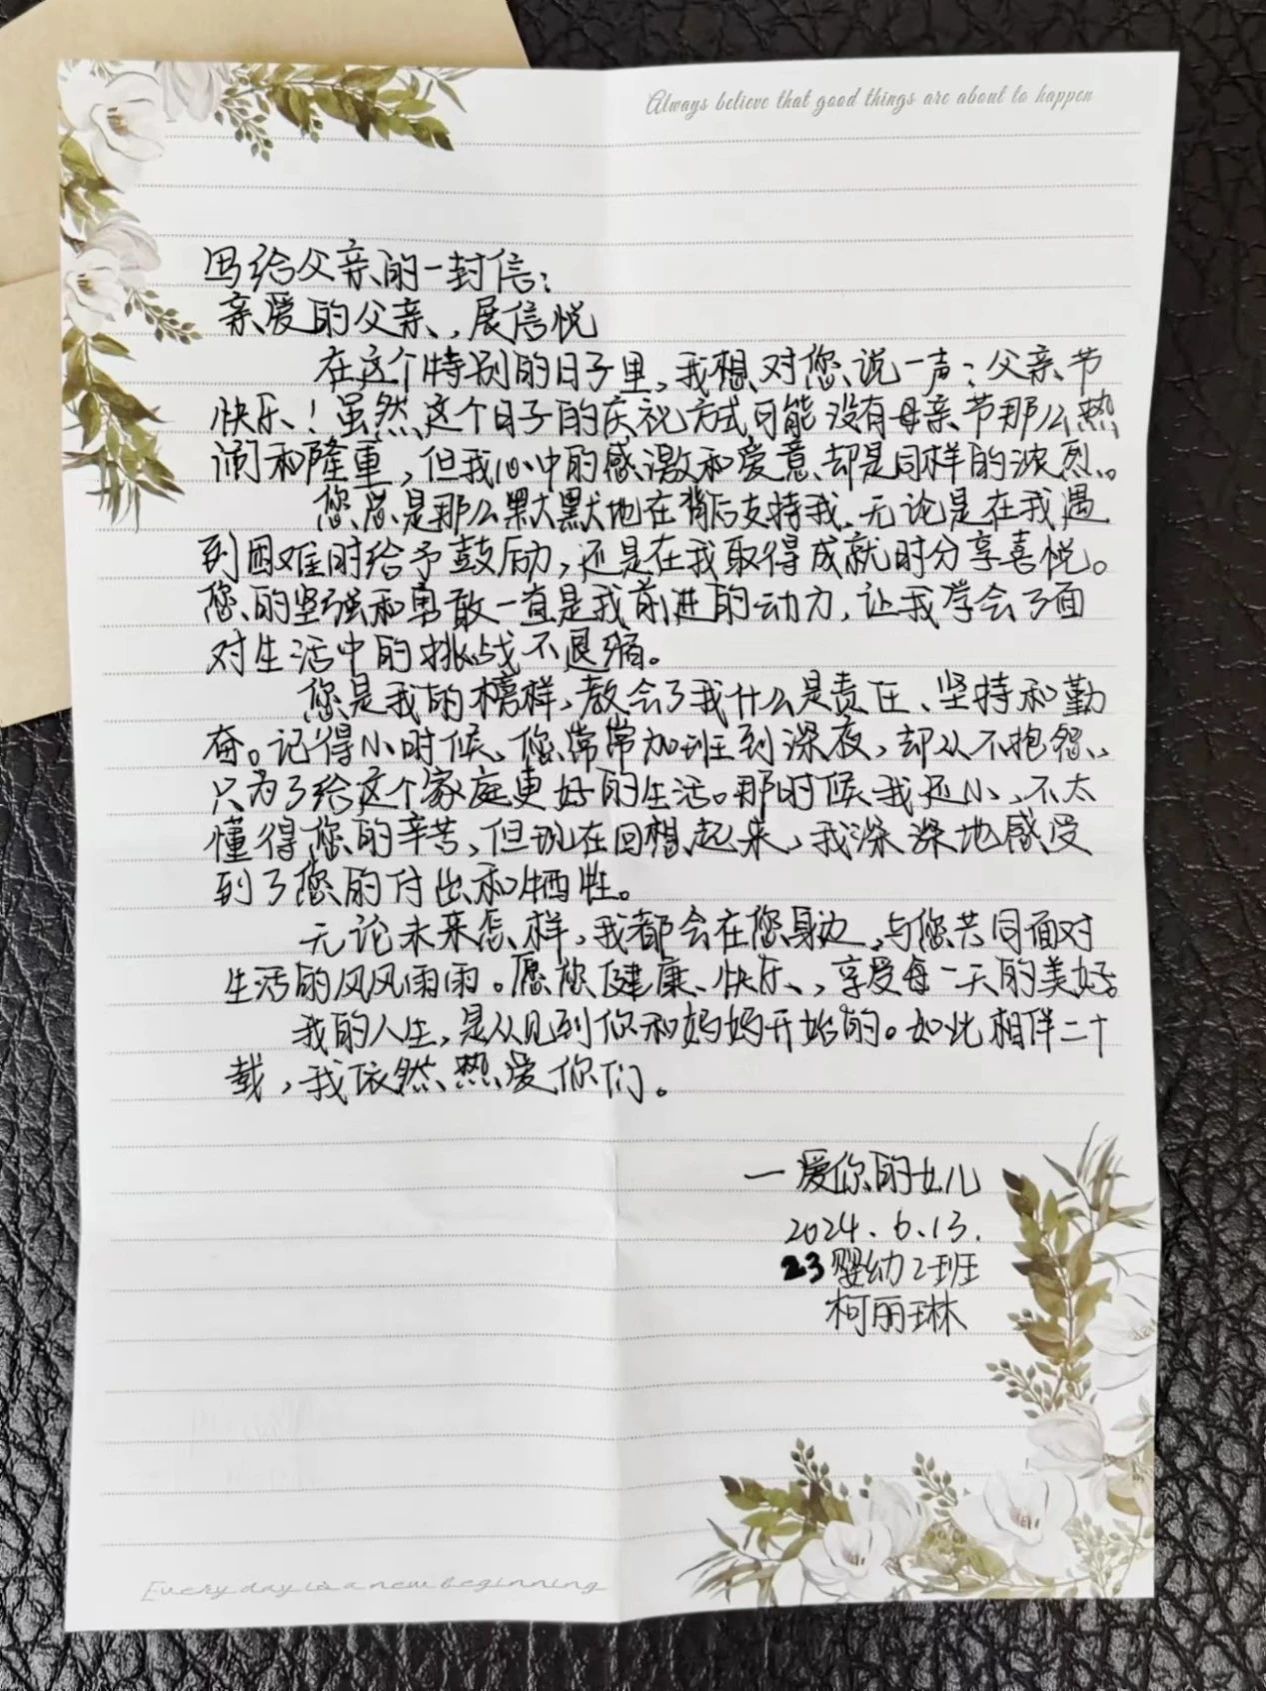 Always believe that good things are about to happen
写给父亲的一封信:
亲爱的父亲,展信悦
在这个特别的日子里,我想对您说一声:父亲节
快乐!虽然这个日子的庆祝方式可能没有母亲节那么热
闹和隆重,但我心中的感激和爱意却是同样的浓烈。
您总是那么默默地在背后支持我,无论是在我遇
到困难时给予鼓励,还是在我取得成就时分享喜悦。
您的坚强和勇敢一直是我前进的动力,让我学会了面
对生活中的挑战不退缩。
您是我的榜样,教会了我什么是责任、坚持和勤
奋。记得小时候,您常常加班到深夜,却从不抱怨,
只为了给这个家庭更好的生活。那时候我还小,不太
懂得您的辛苦,但现在回想起来,我深深地感受
到了您的付出和牺牲。
无论未来怎样,我都会在您身边,与您共同面对
生活的风风雨雨。愿您健康、快乐,享受每一天的美好。
我的人生,是从见到你和妈妈开始的。如此相伴二十
载,我依然热爱你们。
—爱你的女儿
2024.6.13.
23婴幼2班
柯丽琳
Every day is a new beginning